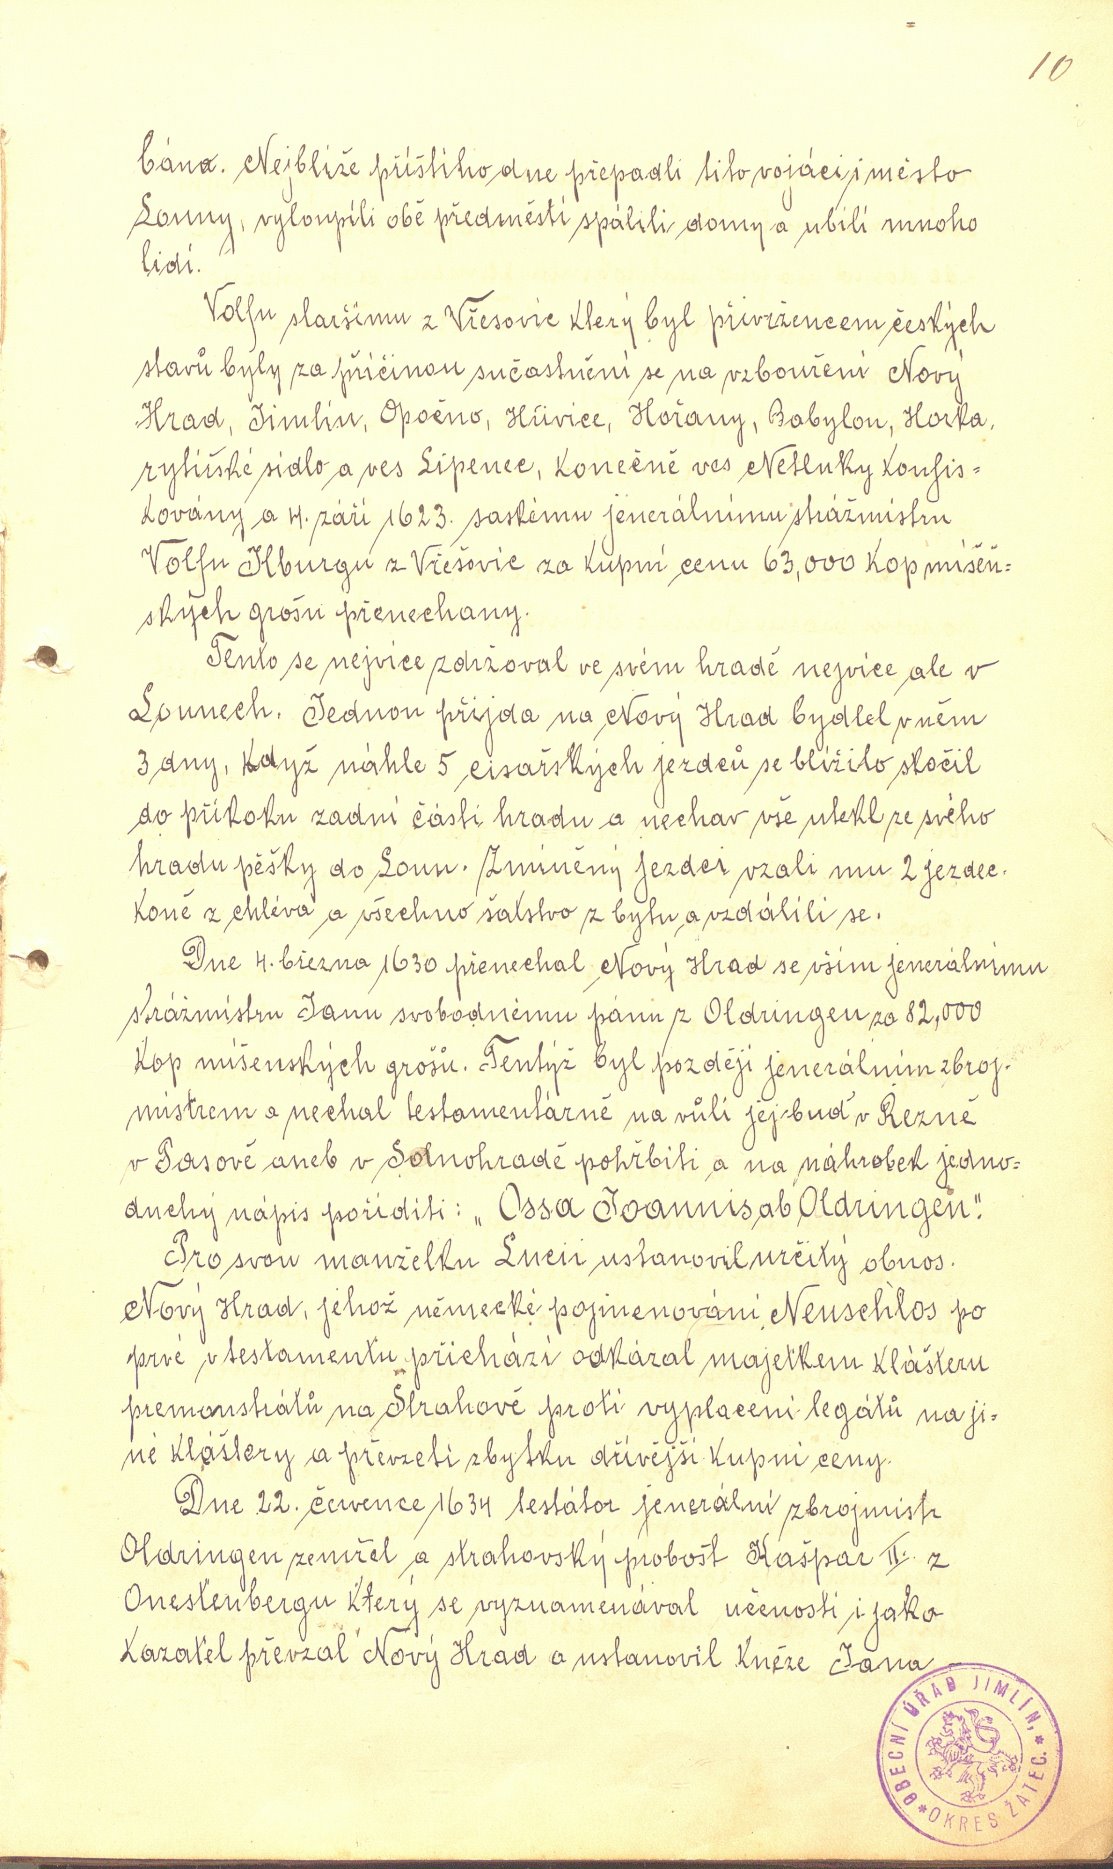 10
bána. Nejblíže příštího dne přepadli tito vojáci i město
Louny, vyloupili obě předměstí spálili domy a ubili mnoho
lidí.
Volfu staršímu z Vřesovic který byl přivržencem českých
stavů byly za příčinou sučastnění se na vzbouření Nový
Hrad, Jimlín, Opočno, Hřivice, Hořany, Babylon, Horka,
rytířské sídlo a ves Lipenec, konečně ves Netluky konfis=
kovány a 4. září 1623. saskému jenerálnímu strážmistru
Volfu Ilburgu z Vřešovic za kupní cenu 63,000 kop míšeň=
ských grošu přenechany.
Tento se nejvíce zdržoval ve svém hradě nejvíce ale v
Lounech. Jednou přijda na Nový Hrad bydlel v něm
3 dny, když náhle 5 císařských jezdců se blížilo skočil
do příkoku zadní části hradu a nechav vše utekl ze svého
hradu pěšky do Loun. Zmíněný jezdci vzali mu 2 jezdec.
koně z chléva a všechno šatstvo z bytu a vzdálili se.
Dne 4. března 1630 přenechal Nový Hrad se vším jenerálnímu
strážmistru Janu svobodnému pánu z Oldringen za 82,000
kop míšenských grošů. Tentýž byl později jenerálním zbroj-
mistrem a nechal testamentárně na vůli jej buď v Řezně
v Pasově aneb v Solnohradě pohřbíti a na náhrobek jedno=
duchý nápis poříditi: „Ossa Joannis ab Oldringen".
Pro svou manželku Lucii ustanovil určitý obnos.
Nový Hrad, jehož německé pojmenování Neuschlos po
prvé v testamentu přichází odkázal majetkem klášteru
premonstrátů na Strahově proti vyplacení legátů na ji=
né kláštery a převzetí zbytku dřívější kupní ceny.
Dne 22. července 1634 testátor jenerální zbrojmistr
Oldringen zemřel a strahovský probošt Kašpar II. z
Questenbergu který se vyznamenával učeností i jako
kazatel převzal Nový Hrad a ustanovil kněze Jana
OBECNÍ ÚŘAD JIMLÍN,
* OKRES ŽATEC. *